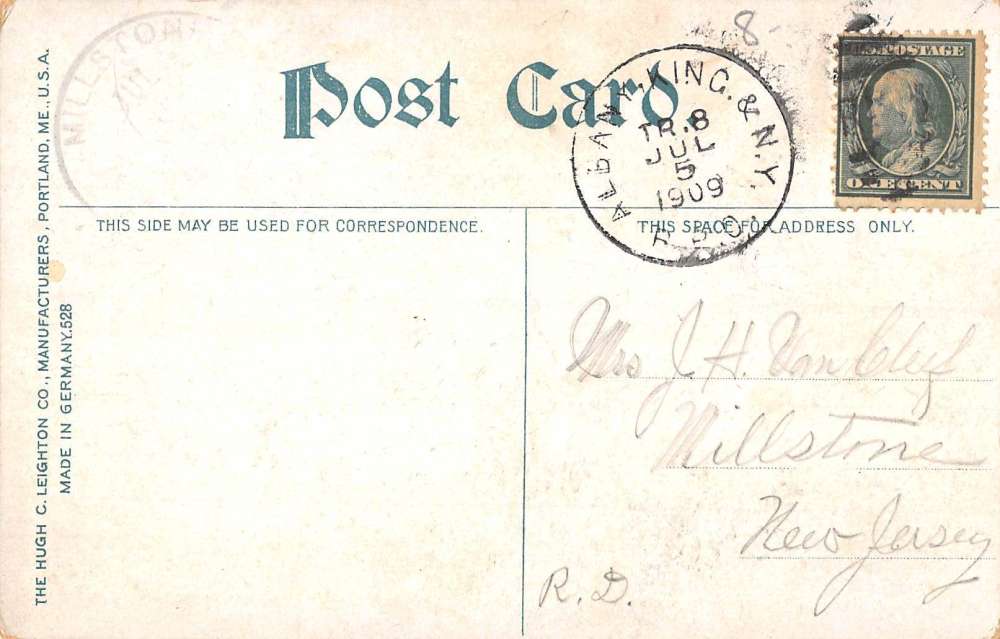 THE HUGH C. LEIGHTON CO., MANUFACTURERS, PORTLAND, ME., U.S.A.
MADE IN GERMANY. 528
MILLSTON
JUL
Post Card.
8
ALBANY, KING. & N.Y.
TR. 8
JUL
5
1909
R.P.O.
U.S. POSTAGE
ONE CENT
THIS SIDE MAY BE USED FOR CORRESPONDENCE.
THIS SPACE FOR ADDRESS ONLY.
Mrs J. H. Van Cleef
Millstone
New Jersey
R. D.